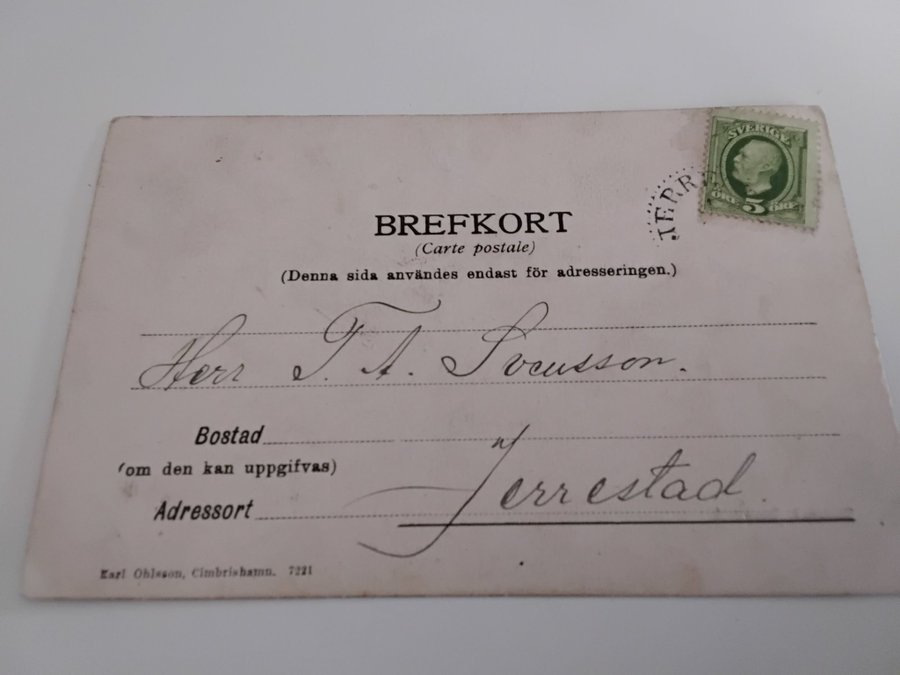 SVERIGE
ÖRE 5 ÖRE
JERR
BREFKORT
(Carte postale)
(Denna sida användes endast för adresseringen.)
Herr T. A. Svensson.
Bostad
(om den kan uppgifvas)
Adressort Jerrestad.
Karl Ohlsson, Cimbrishamn. 7221